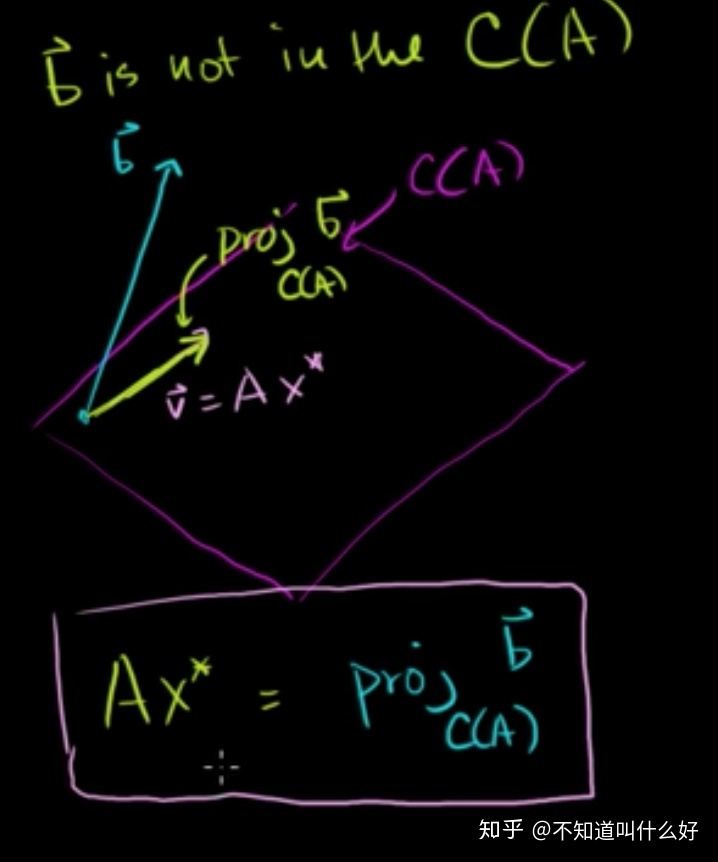 b⃗ is not in the C(A)
b⃗
C(A)
proj b⃗
C(A)
v⃗ = Ax*
Ax* = proj b⃗
C(A)
知乎 @不知道叫什么好